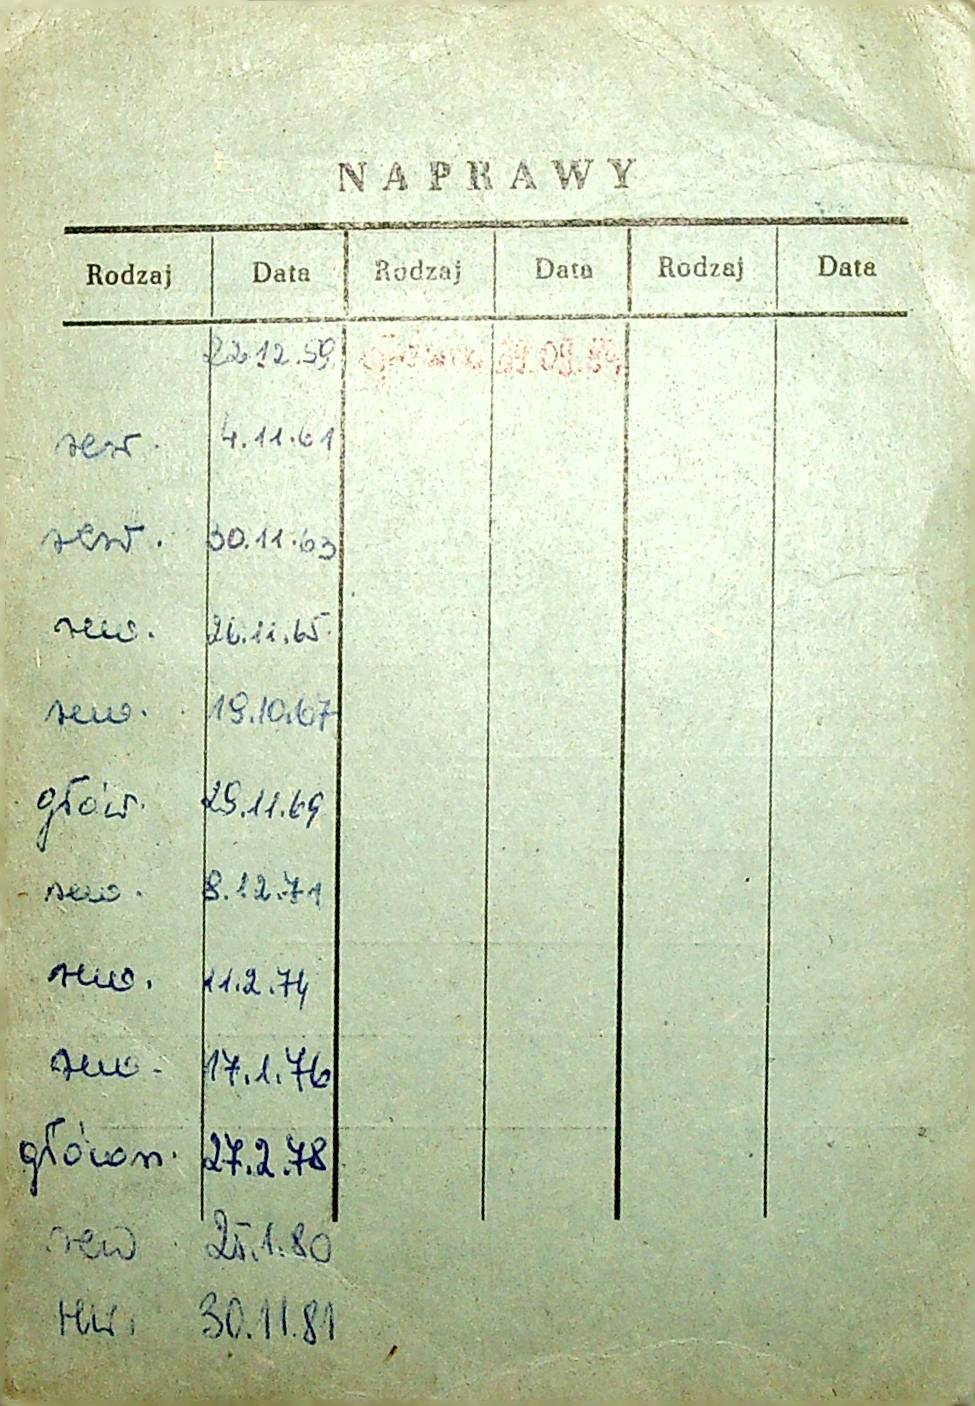 NAPRAWY
Rodzaj Data Rodzaj Data Rodzaj Data
22.12.59 główna
rew. 4.11.61
rew. 30.11.63
rew. 26.11.65
rew. 19.10.67
głów. 29.11.69
rew. 8.12.71
rew. 11.2.74
rew. 17.1.76
główn. 27.2.78
rew 25.1.80
rew. 30.11.81